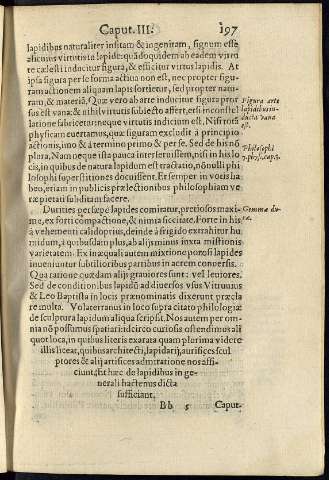 Caput. III. 197
lapidibus naturaliter insitam & ingenitam, signum esse
alicuius virtutis in lapide: quòd quidem ab eadem virtu
te cælesti inducitur figura, & efficitur virtus lapidis. At
ipsa figura per se forma actiua non est, nec propter figu-
ram actionem aliquam lapis sortietur, sed propter natu-
ram, & materiã. Quæ vero ab arte inducitur figura pror
sus est vana: & nihil virtutis subiecto affert, etsi in constel
latione fabricetur: neque virtutis indicium est. Nisi totã
physicam euertamus, quæ figuram excludit à principio
actionis, imo & à termino primo & per se. Sed de his nõ
plura. Nam neque ista pauca interseruissem, nisi in his lo
cis, in quibus de natura lapidum est tractatio, nõnulli phi
losophi superstitiones docuissent. Et semper in votis ha
beo, etiam in publicis prælectionibus philosophiam ve
ræ pietati subditam facere.
Figura arte
lapidibus in
ducta vana
est.
Philosophi
Durities per sæpe lapides comitatur, pretiosos maxi-
me, ex forti compactione, & nimia siccitate. Forte in his
à vehementi calido prius, deinde à frigido extrahitur hu
midum, à quibusdam plus, ab alijs minus iuxta mistionis
varietatem. Ex inæquali autem mixtione porosi lapides
inueniuntur subtilioribus partibus in aerem conuersis.
Qua ratione quædam alijs grauiores sunt: vel leuiores.
Sed de conditionibus lapidũ ad diuersos vsus Vitruuius
& Leo Baptista in locis prænominatis dixerunt præcla
re multa. Volaterranus in loco supra citato philologiæ
de sculptura lapidum aliqua scripsit. Nos autem per om-
nia nõ possumus spatiari: idcirco curiosis ostendimus ali
quot loca, in quibus literis exarata quam plurima videre
illis liceat, quibus architecti, lapidarij, aurifices scul
ptores & alij artifices admiratione nos affi-
ciunt. Sit hæc de lapidibus in ge-
nerali hactenus dicta
sufficiant.
Gemmæ du-
ræ.
Bb 5 Caput.